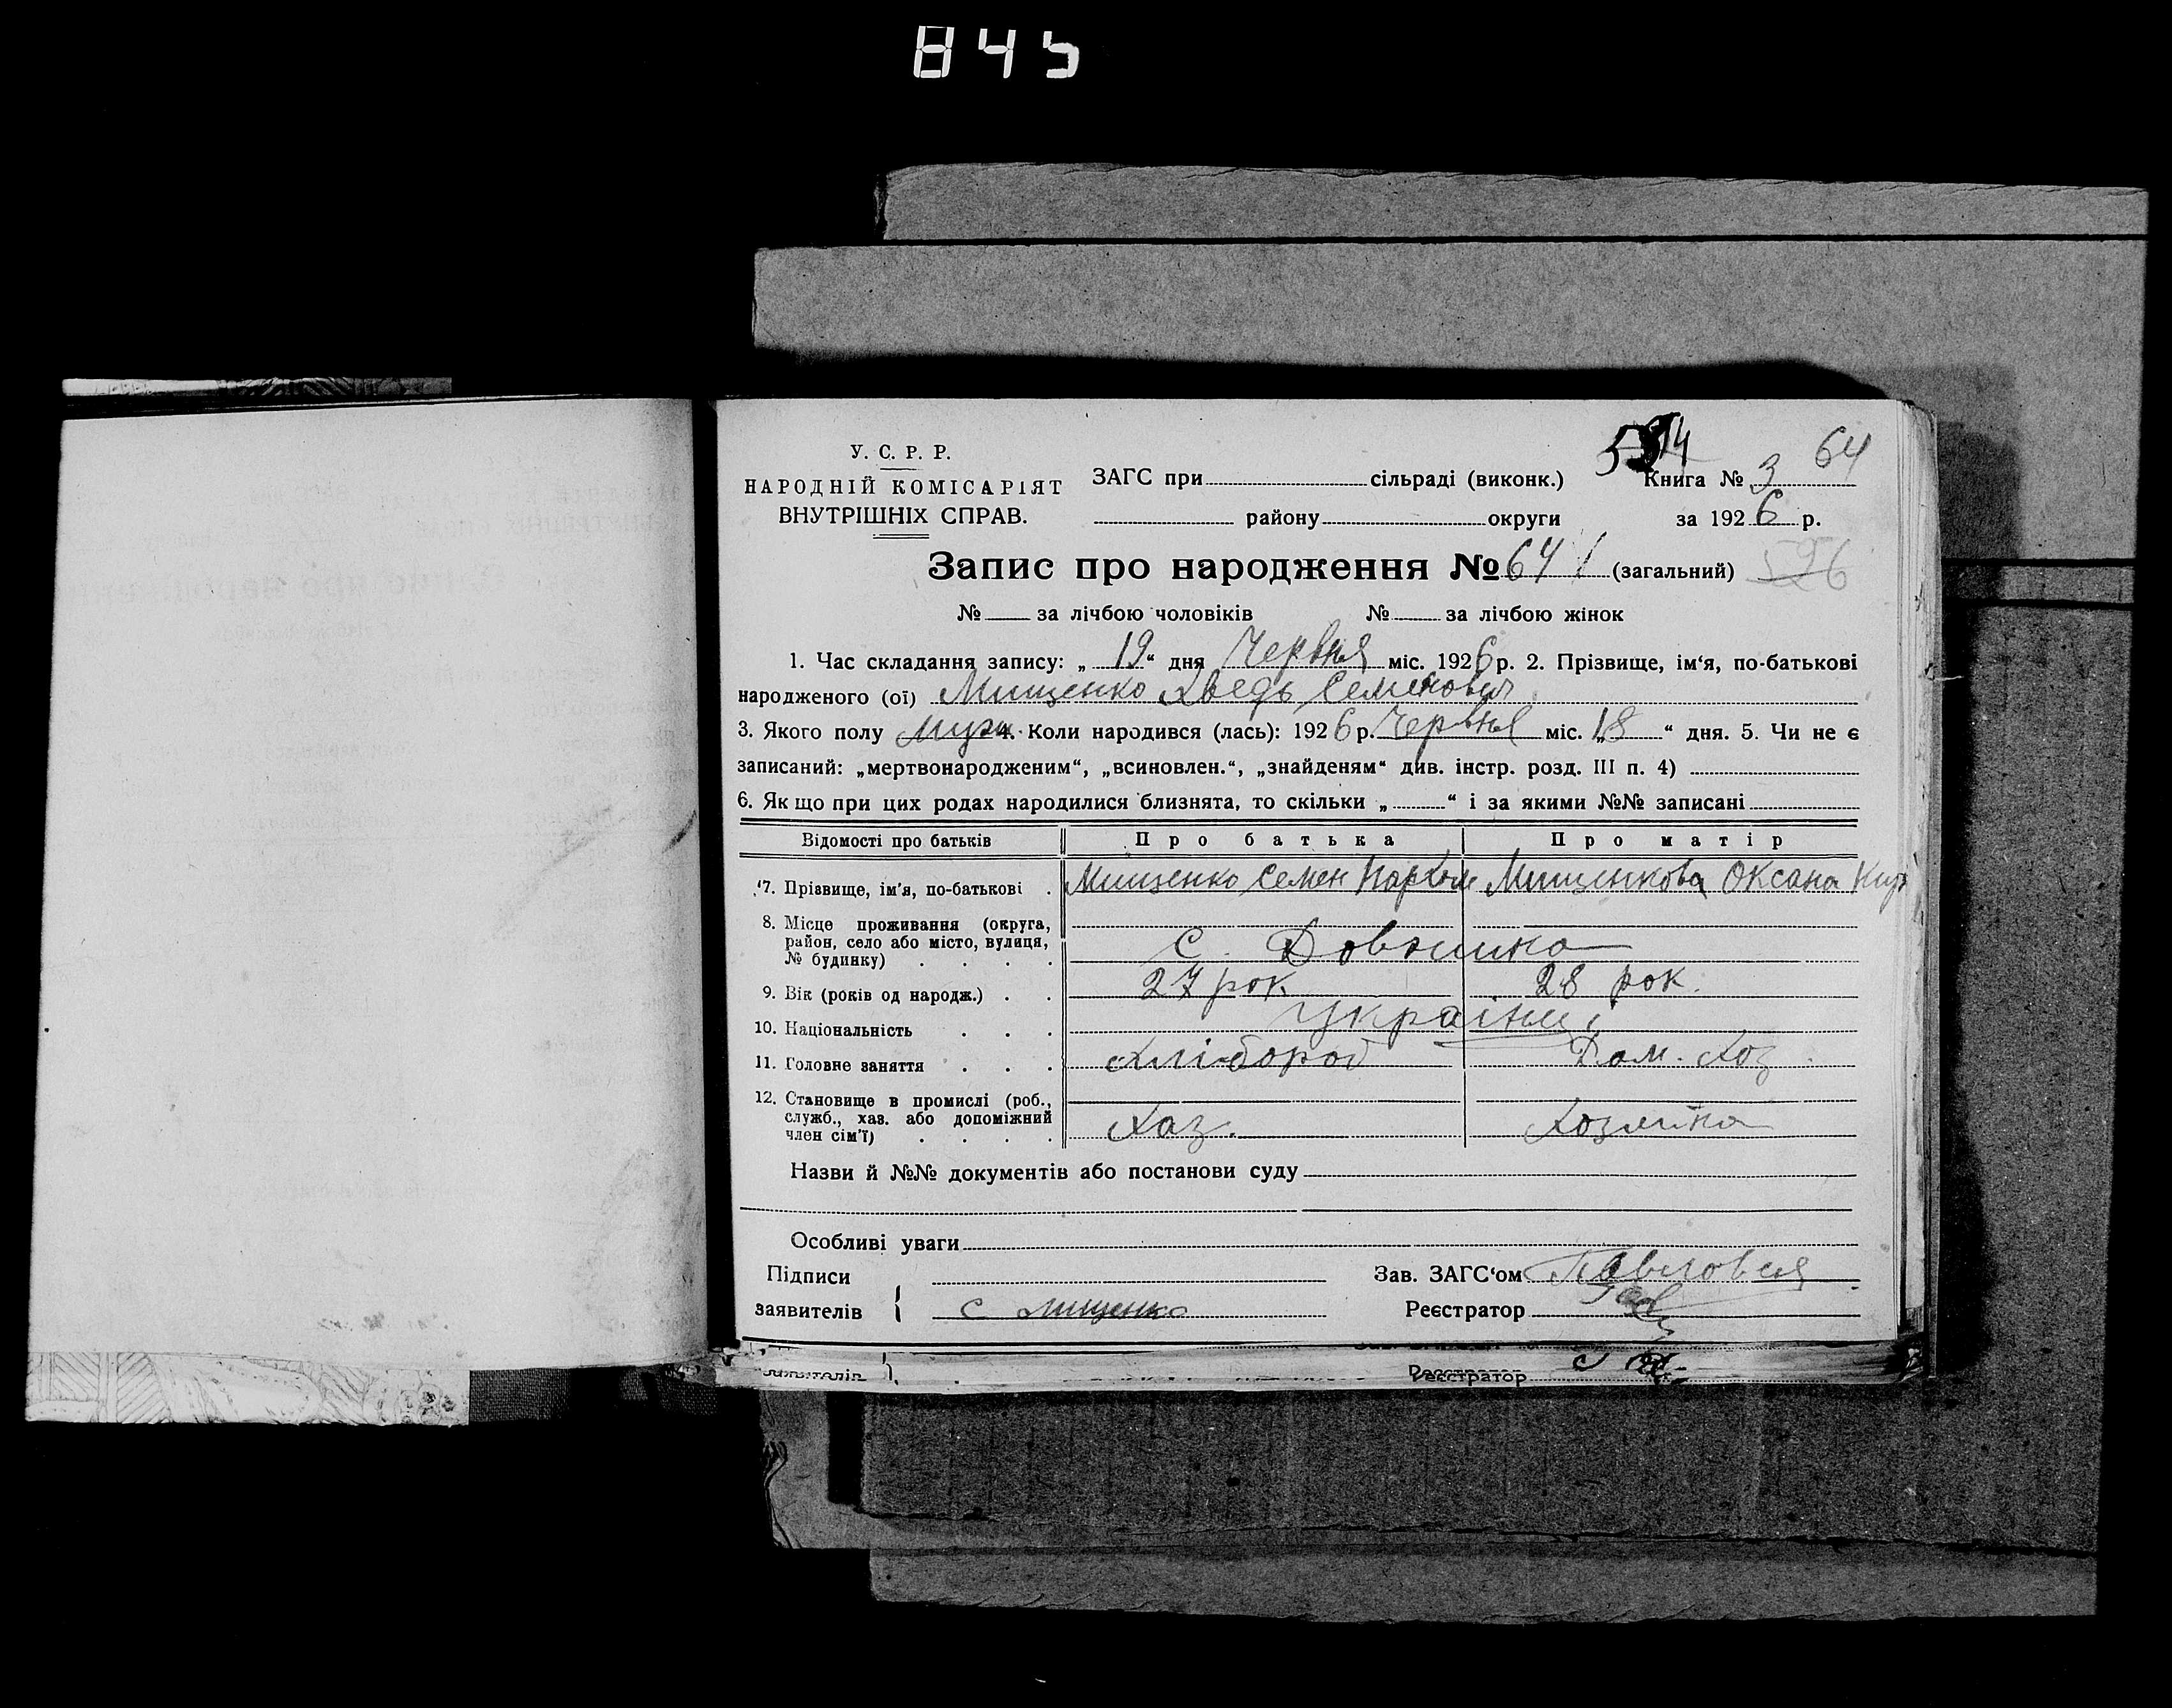 845
У. С. Р. Р.
НАРОДНІЙ КОМІСАРІЯТ
ВНУТРІШНІХ СПРАВ.
ЗАГС при сільраді (виконк.)
району округи
64
Книга № 3
за 1926 р.
Запис про народження № 641 (загальний) 526
№ за лічбою чоловіків № за лічбою жінок
1. Час складання запису: „ 19 “ дня Червня міс. 1926 р. 2. Прізвище, ім‘я, по-батькові
народженого (ої) Мищенко Хведь Семенович
3. Якого полу муж. 4. Коли народився (лась): 1926 р. Червня міс. „18“ дня. 5. Чи не є
записаний: „мертвонародженим“, „всиновлен.“, „знайденям“ див. інстр. розд. III п. 4)
6. Якщо при цих родах народилися близнята, то скільки „ “ і за якими №№ записані
Відомості про батьків Про батька Про матір
7. Прізвище, ім'я, по-батькові . Мищенко Семен Пархом Мищенкова Оксана Кир
8. Місце проживання (округа,
район, село або місто, вулиця,
№ будинку) . . . . С. Довжика
9. Вік (років од народж.) . . 27 рок 28 рок.
10. Національність . . . Українці
11. Головне заняття . . . Хлібороб Дом. Хоз.
12. Становище в промислі (роб.,
служб., хаз. або допоміжний
член сім'ї) . . . . Хаз. Хозяйка
Назви й №№ документів або постанови суду
Особливі уваги
Підписи
заявителів { с мищенко
Зав. ЗАГС‘ом
Реєстратор
заявителів }
Реєстратор